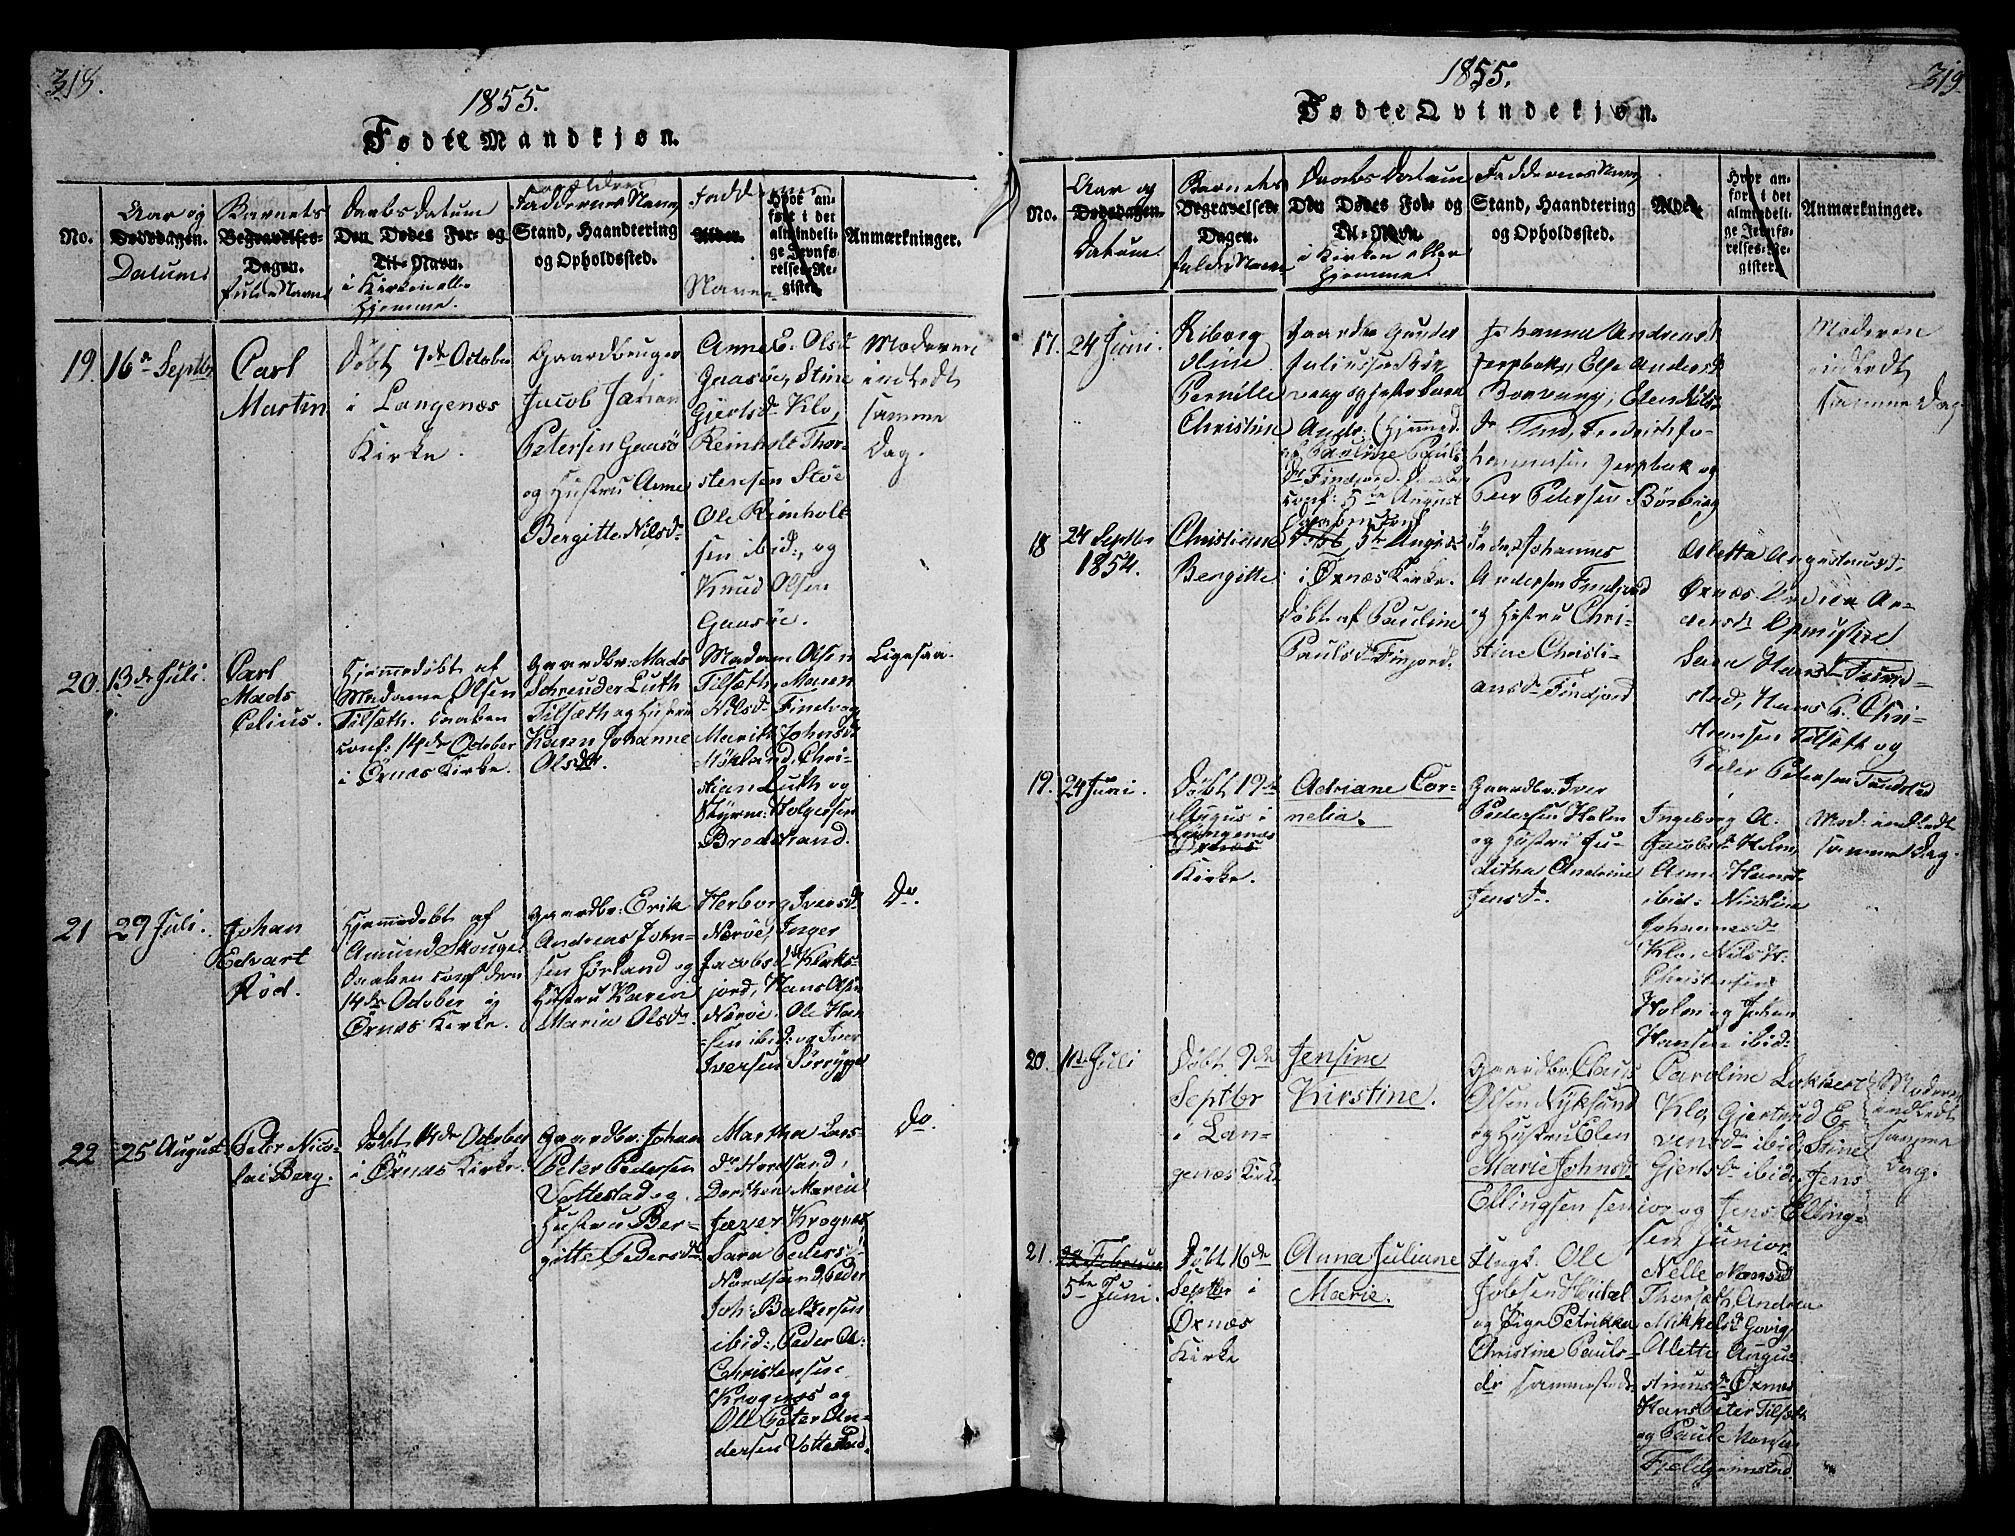 318.
1855.
Fødte Mandkjøn.
No.
Aar og
Dødsdagen.
Datum
Barnets
Begravelses-
Dagen.
fulde Navn
Daabs Datum
Den Dødes For- og
Til-Navn.
i Kirken ell.
Hjemme.
Forældre
Faddernes Navn,
Stand, Haandtering
og Opholdssted.
Fadd
Alder.
Navne
Hvor an-
ført i det
almindeli-
ge Jevnfø-
relses-Re-
gister.
Anmærkninger.
19.
16de Septbr
Carl
Martin
Døbt 7de October
i Langenæs
Kirke.
Gaardbruger
Jacob Johan
Petersen Gaasø
og Hustru Anne
Bergitte Nilsdr
Anne E. Olsdr
Gaasøe, Stine
Gjertsdr Klo,
Reinholt Thor-
stensen Støe
Ole Reinholt-
sen ibid:, og
Knud Olsen
Gaasøe.
Moderen
indledt
samme
Dag.
20.
13de Juli.
Carl
Mads
Celius.
Hjemmedøbt af
Madame Olsen
Tilsæth. Daaben
conf: 14de October
i Örnæs Kirke.
Gaardbr: Mads
Schreuder Luth
Tilsæth og Hustru
Karen Johanne
Olsdr
Madam Olsen
Tilsæth, Maren
Nilsdr Findvog
Marith Johnsdr
Høkland, Chri-
stian Luth og
Styrm: Holgersen
Bredstrand.
Ligesaa.
21
29 Juli.
Johan
Edvart
Rød.
Hjemmedøbt af
Amund Skouge.
Daaben conf den
14de October i
Örnæs Kirke.
Gaardbr: Erik
Andreas John-
sen Jørland og
Hustru Karen
Maria Olsdr
Herborg Iversdr
Nærøe, Inger
Jacobsdr Klaks-
jord, Hans Olsen
Nærøe, Ole Han-
sen ibid: og Iver
Iversen Sørrygge
Do.
22
25 August
Peter Nico-
lai Berg.
Døbt 14de October
i Örnæs Kirke.
Gaardbr: Johan
Peter Pedersen
Vottestad og
Hustru Ber-
gitte Pedersdr
Martha Lars-
dr Nordsand,
Dorthea Maren
Jæger Krognæs
Sara Peders-
Nordsand, Peder
Joh: Baltzersen
ibid:, Peder A.
Christensen
Krognæs og
Ole Peter An-
dersen Vottestad.
Do.
319.
1855.
Fødte Qvindekjøn.
No.
Aar og
Dødsdagen.
Datum
Barnets
Begravelses-
Dagen.
fulde Navn
Daabs Datum
Den Dødes For- og
Til-Navn.
i Kirken eller
Hjemme.
Faddernes Navn,
Stand, Haandtering
og Opholdssted.
Alder.
Hvor an-
ført i det
almindeli-
ge Jevnfø-
relses-Re-
gister.
Anmærkninger.
17.
24 Juni.
Riborg
Oline
Pernille
Christine
Gaardbr Gunder
Andr. (Hjemmed.
af Pauline Pauls
dr Finfjord. Daaben
conf: 5te August
Johanna Andreasd
Jerpbak, Else Andersdr
dr Tind, Fredrich Jo-
hannesen Jerpbak og
Peer Petersen
Moderen
indledt
samme Dag
18
24 Septbr
1854.
Christianne
Bergitte
5te August
i Örnæs Kirke.
Døbt af Pauline
Paulsdr Finjord.
Peder Johannes
Andersen Finfjord
og Hustru Chri-
stine Christi-
ansdr Finfjord
Aletta Augustinusdr
Örnæs
Sara Hansdr
stad, Hans P. Chri-
stensen Tilsæth og
Peder Petersen
19.
24 Juni.
Døbt 19de
August i
Langenæs
Örnæs
Kirke.
Adriane Cor-
nelia.
Gaardbr: Iver
Pedersen Holm
og Hustru Ju-
ditha Andrine
Jensdr.
Ingeborg A.
Jacobsdr Holm,
Anne Hansdr
ibid: Nicoline
Johannesdr
Klo, Nils H.
Christensen
Holm og Johan
Hansen ibid:
Mod: indledt
samme Dag.
20.
11te Juli
Døbt 9de
Septbr
i Lan-
genæs Kirke
Jensine
Kirstine.
Gaardbr: Claus
Olsen Nyksund
og Hustru Elen
Marie Johnsdr
Caroline Lokkert
Klo, Gjertrud E-
vensdr ibid:, Stine
Gjertsdr ibid:, Jens
Ellingsen senior og Jens Elling-
sen junior
Moderen
indledt
samme
Dag.
21.
22 Februar
5te Juni.
Døbt 16de
Septbr i
Örnæs
Kirke
Anna Juliane
Marie.
Ungk. Ole
Jobsen
og Pige Petrikka
Christine Pauls-
dr sammesteds
Nelle Hansdr
Thorsæth, Andrea
Mikkelsdr Govig,
Alette Augu-
stinusdr Örnæs
Hans Peter Tilsæth
og Paule Hansen
Fjeldgrimstad.